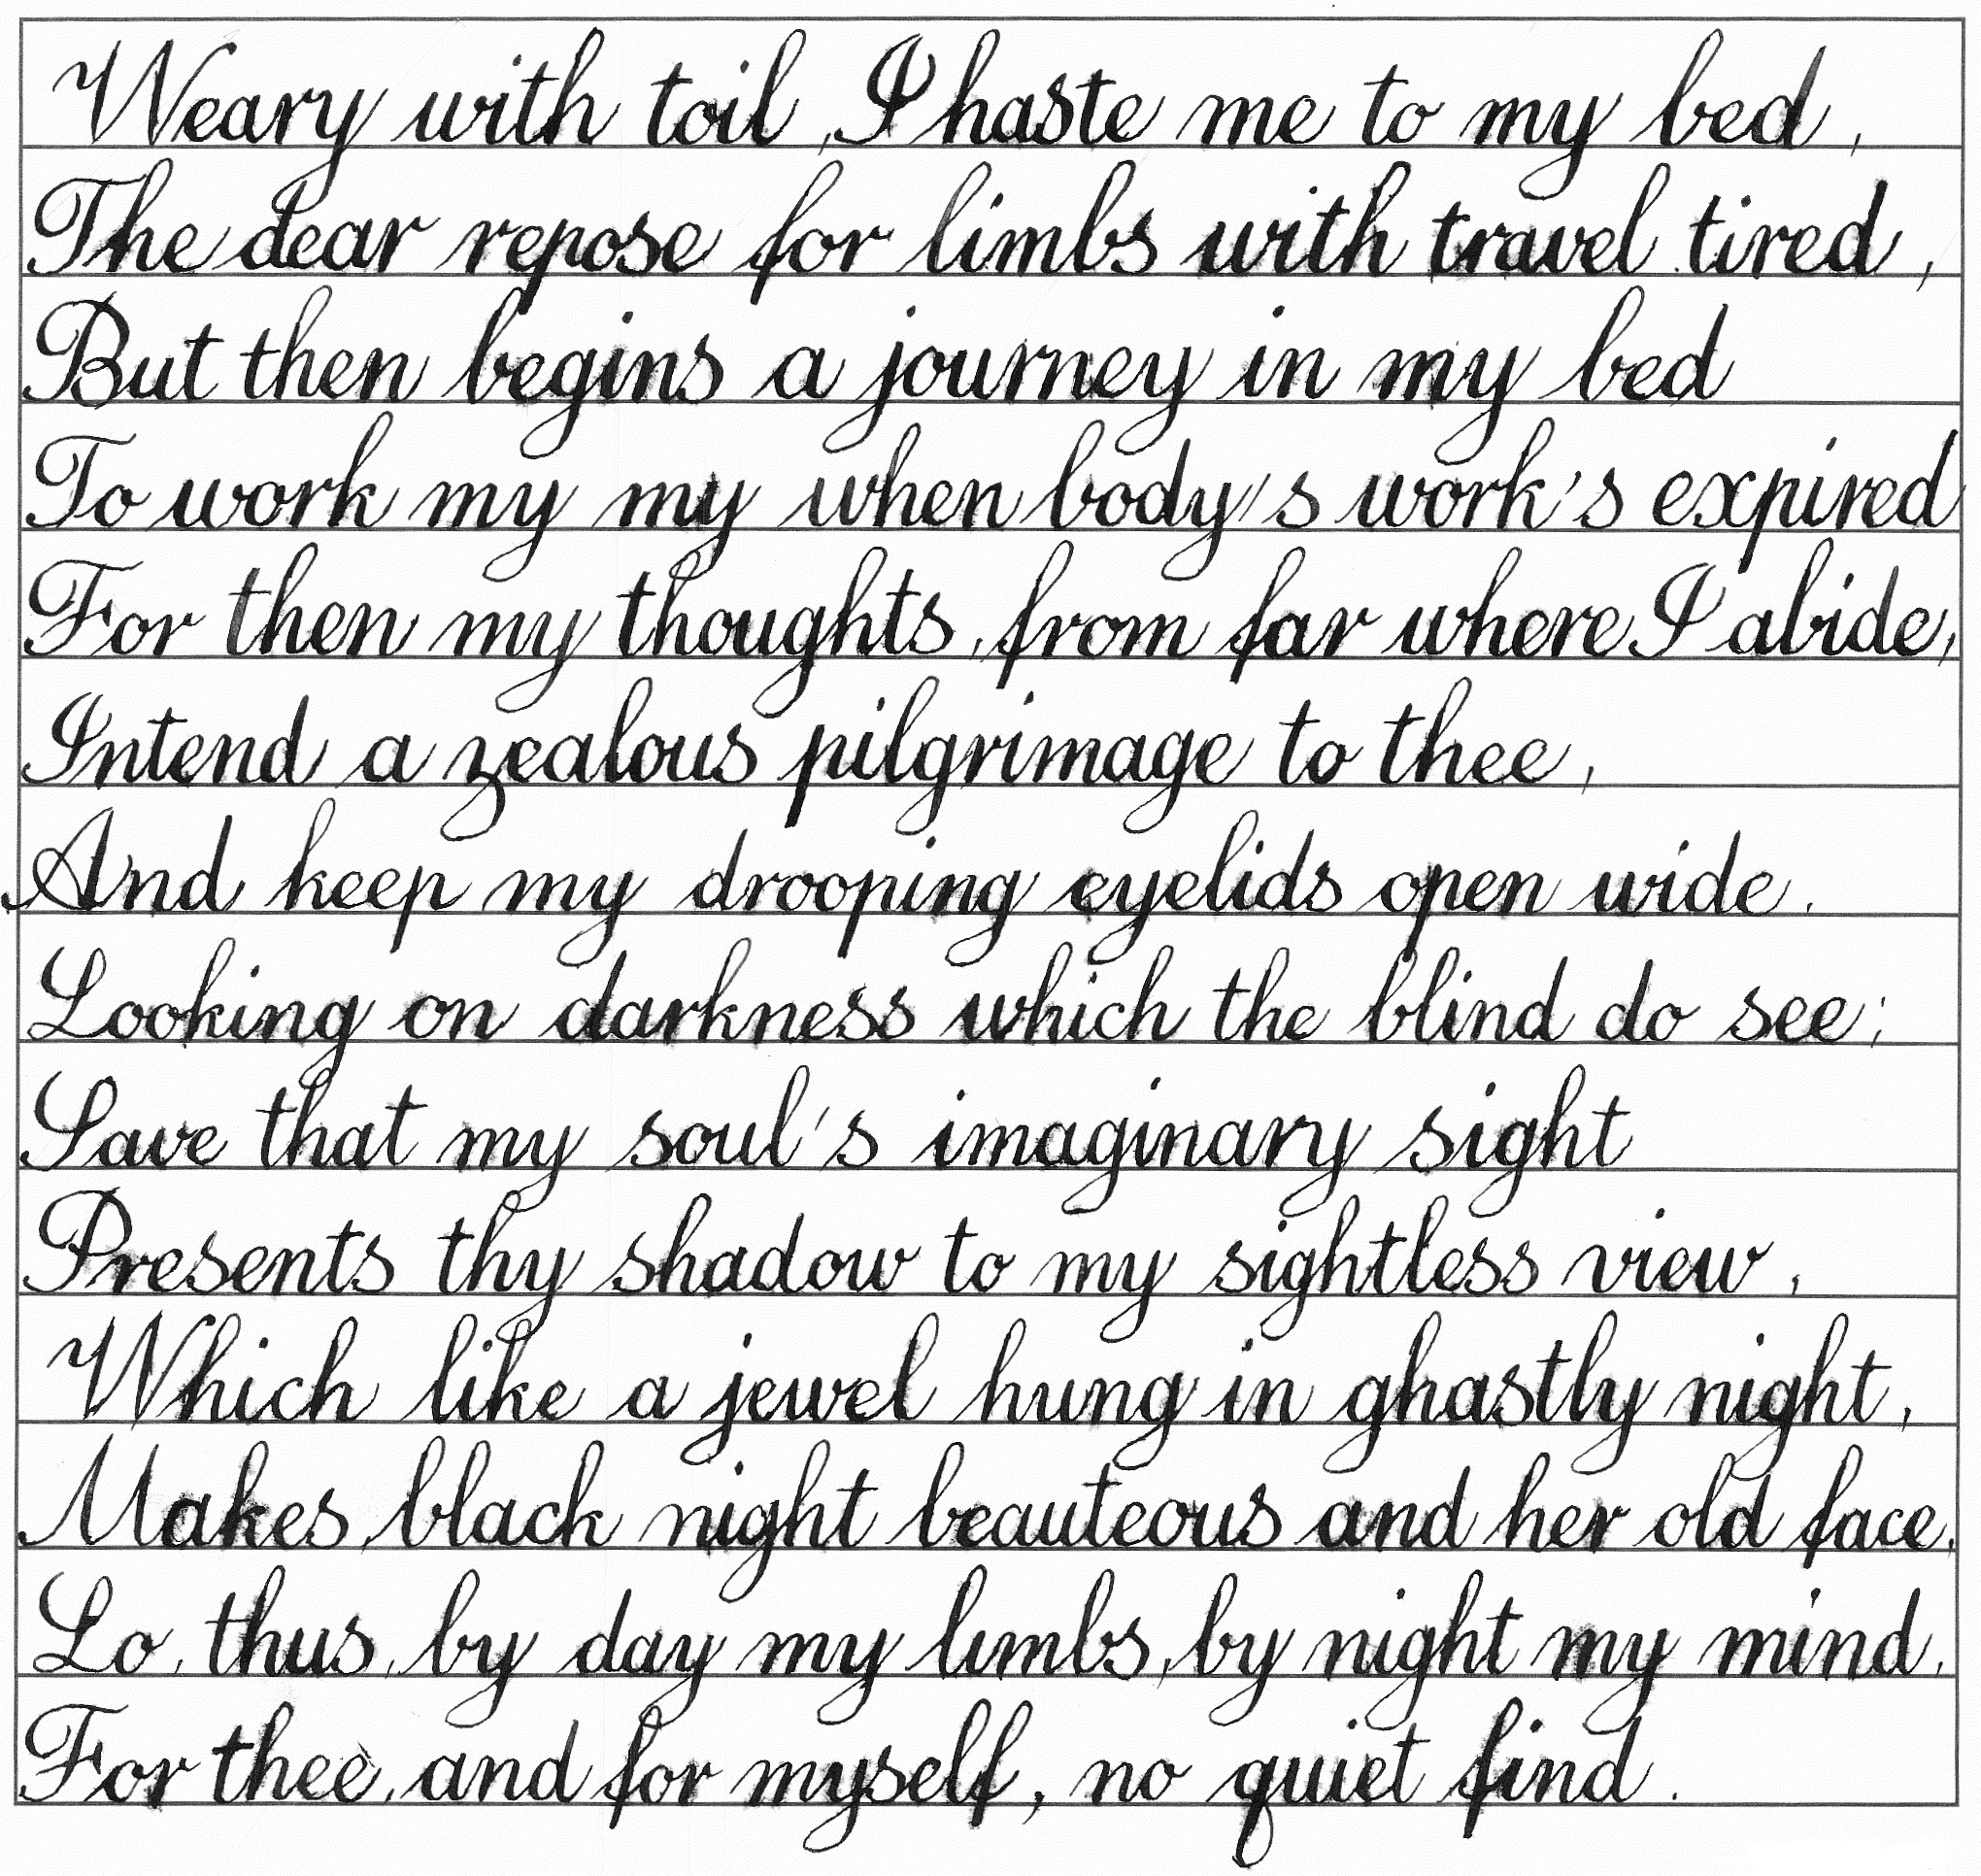 Weary with toil, I haste me to my bed,
The dear repose for limbs with travel tired,
But then begins a journey in my bed
To work my my when body's work's expired
For then my thoughts, from far where I abide,
Intend a zealous pilgrimage to thee,
And keep my drooping eyelids open wide.
Looking on darkness which the blind do see;
Save that my soul's imaginary sight
Presents thy shadow to my sightless view,
Which like a jewel hung in ghastly night,
Makes black night beauteous and her old face.
Lo, thus, by day my limbs, by night my mind,
For thee, and for myself, no quiet find.